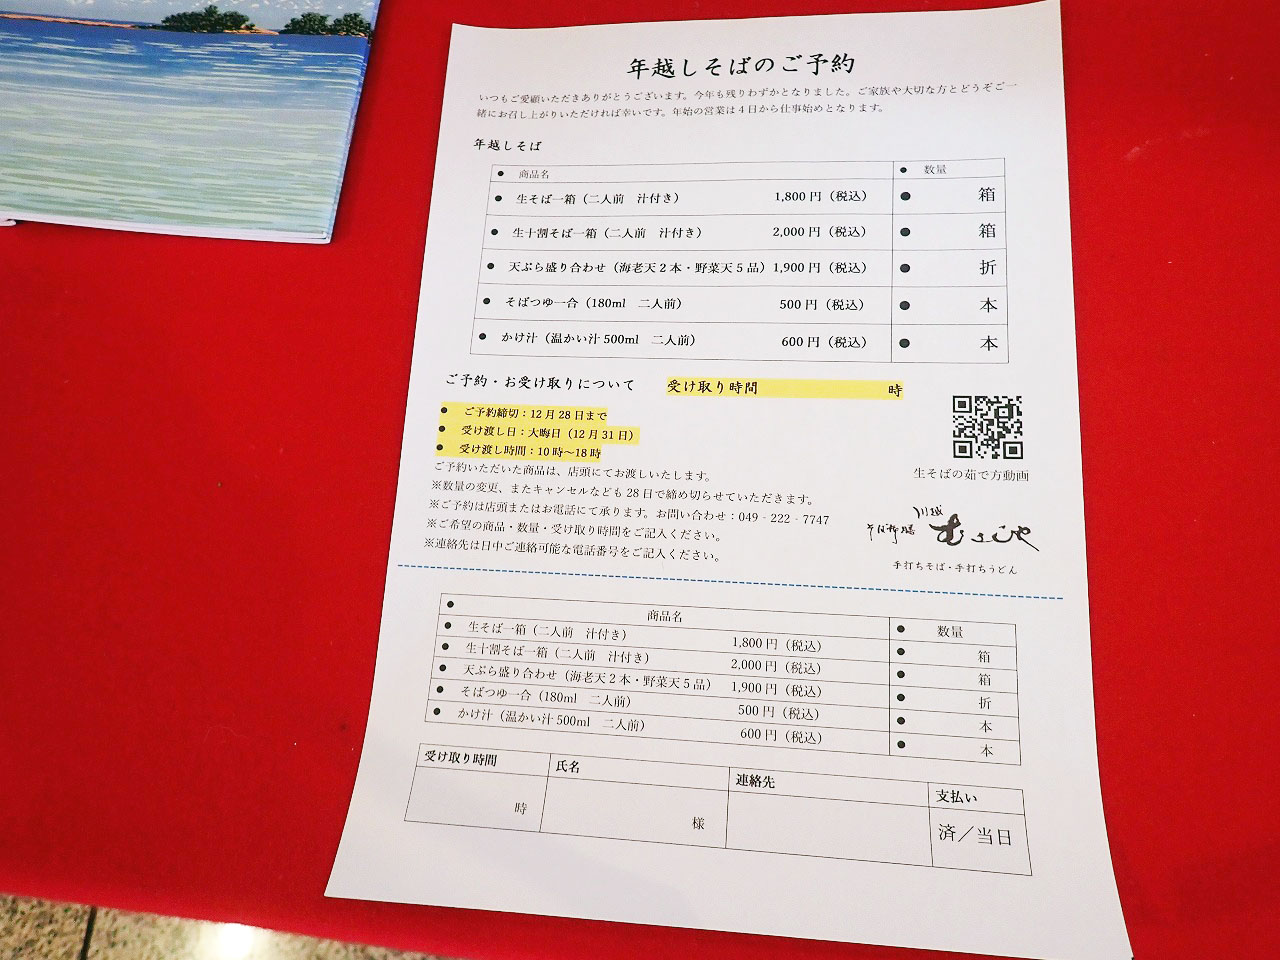 年越しそばのご予約
いつもご愛顧いただきありがとうございます。今年も残りわずかとなりました。ご家族や大切な方とどうぞご一
緒にお召し上がりいただければ幸いです。年始の営業は４日から仕事始めとなります。
年越しそば
● 商品名 ● 数量
● 生そば一箱（二人前　汁付き） 1,800 円（税込） ● 箱
● 生十割そば一箱（二人前　汁付き） 2,000 円（税込） ● 箱
● 天ぷら盛り合わせ（海老天２本・野菜天５品） 1,900 円（税込） ● 折
● そばつゆ一合（180ml　二人前） 500 円（税込） ● 本
● かけ汁（温かい汁 500ml　二人前） 600 円（税込） ● 本
ご予約・お受け取りについて 受け取り時間 時
● ご予約締切：12 月 28 日まで
● 受け渡し日：大晦日（12 月 31 日）
● 受け渡し時間：10 時～18 時
ご予約いただいた商品は、店頭にてお渡しいたします。
※数量の変更、またキャンセルなども 28 日で締め切らせていただきます。
※ご予約は店頭またはお電話にて承ります。お問い合わせ：049‐222‐7747
※ご希望の商品・数量・受け取り時間をご記入ください。
※連絡先は日中ご連絡可能な電話番号をご記入ください。
生そばの茹で方動画
川越
むさしや
手打ちそば・手打ちうどん
● 商品名 ● 数量
● 生そば一箱（二人前　汁付き） 1,800 円（税込） ● 箱
● 生十割そば一箱（二人前　汁付き） 2,000 円（税込） ● 箱
● 天ぷら盛り合わせ（海老天２本・野菜天５品） 1,900 円（税込） ● 折
● そばつゆ一合（180ml　二人前） 500 円（税込） ● 本
● かけ汁（温かい汁 500ml　二人前） 600 円（税込） ● 本
受け取り時間 氏名 連絡先 支払い
時 様 済／当日